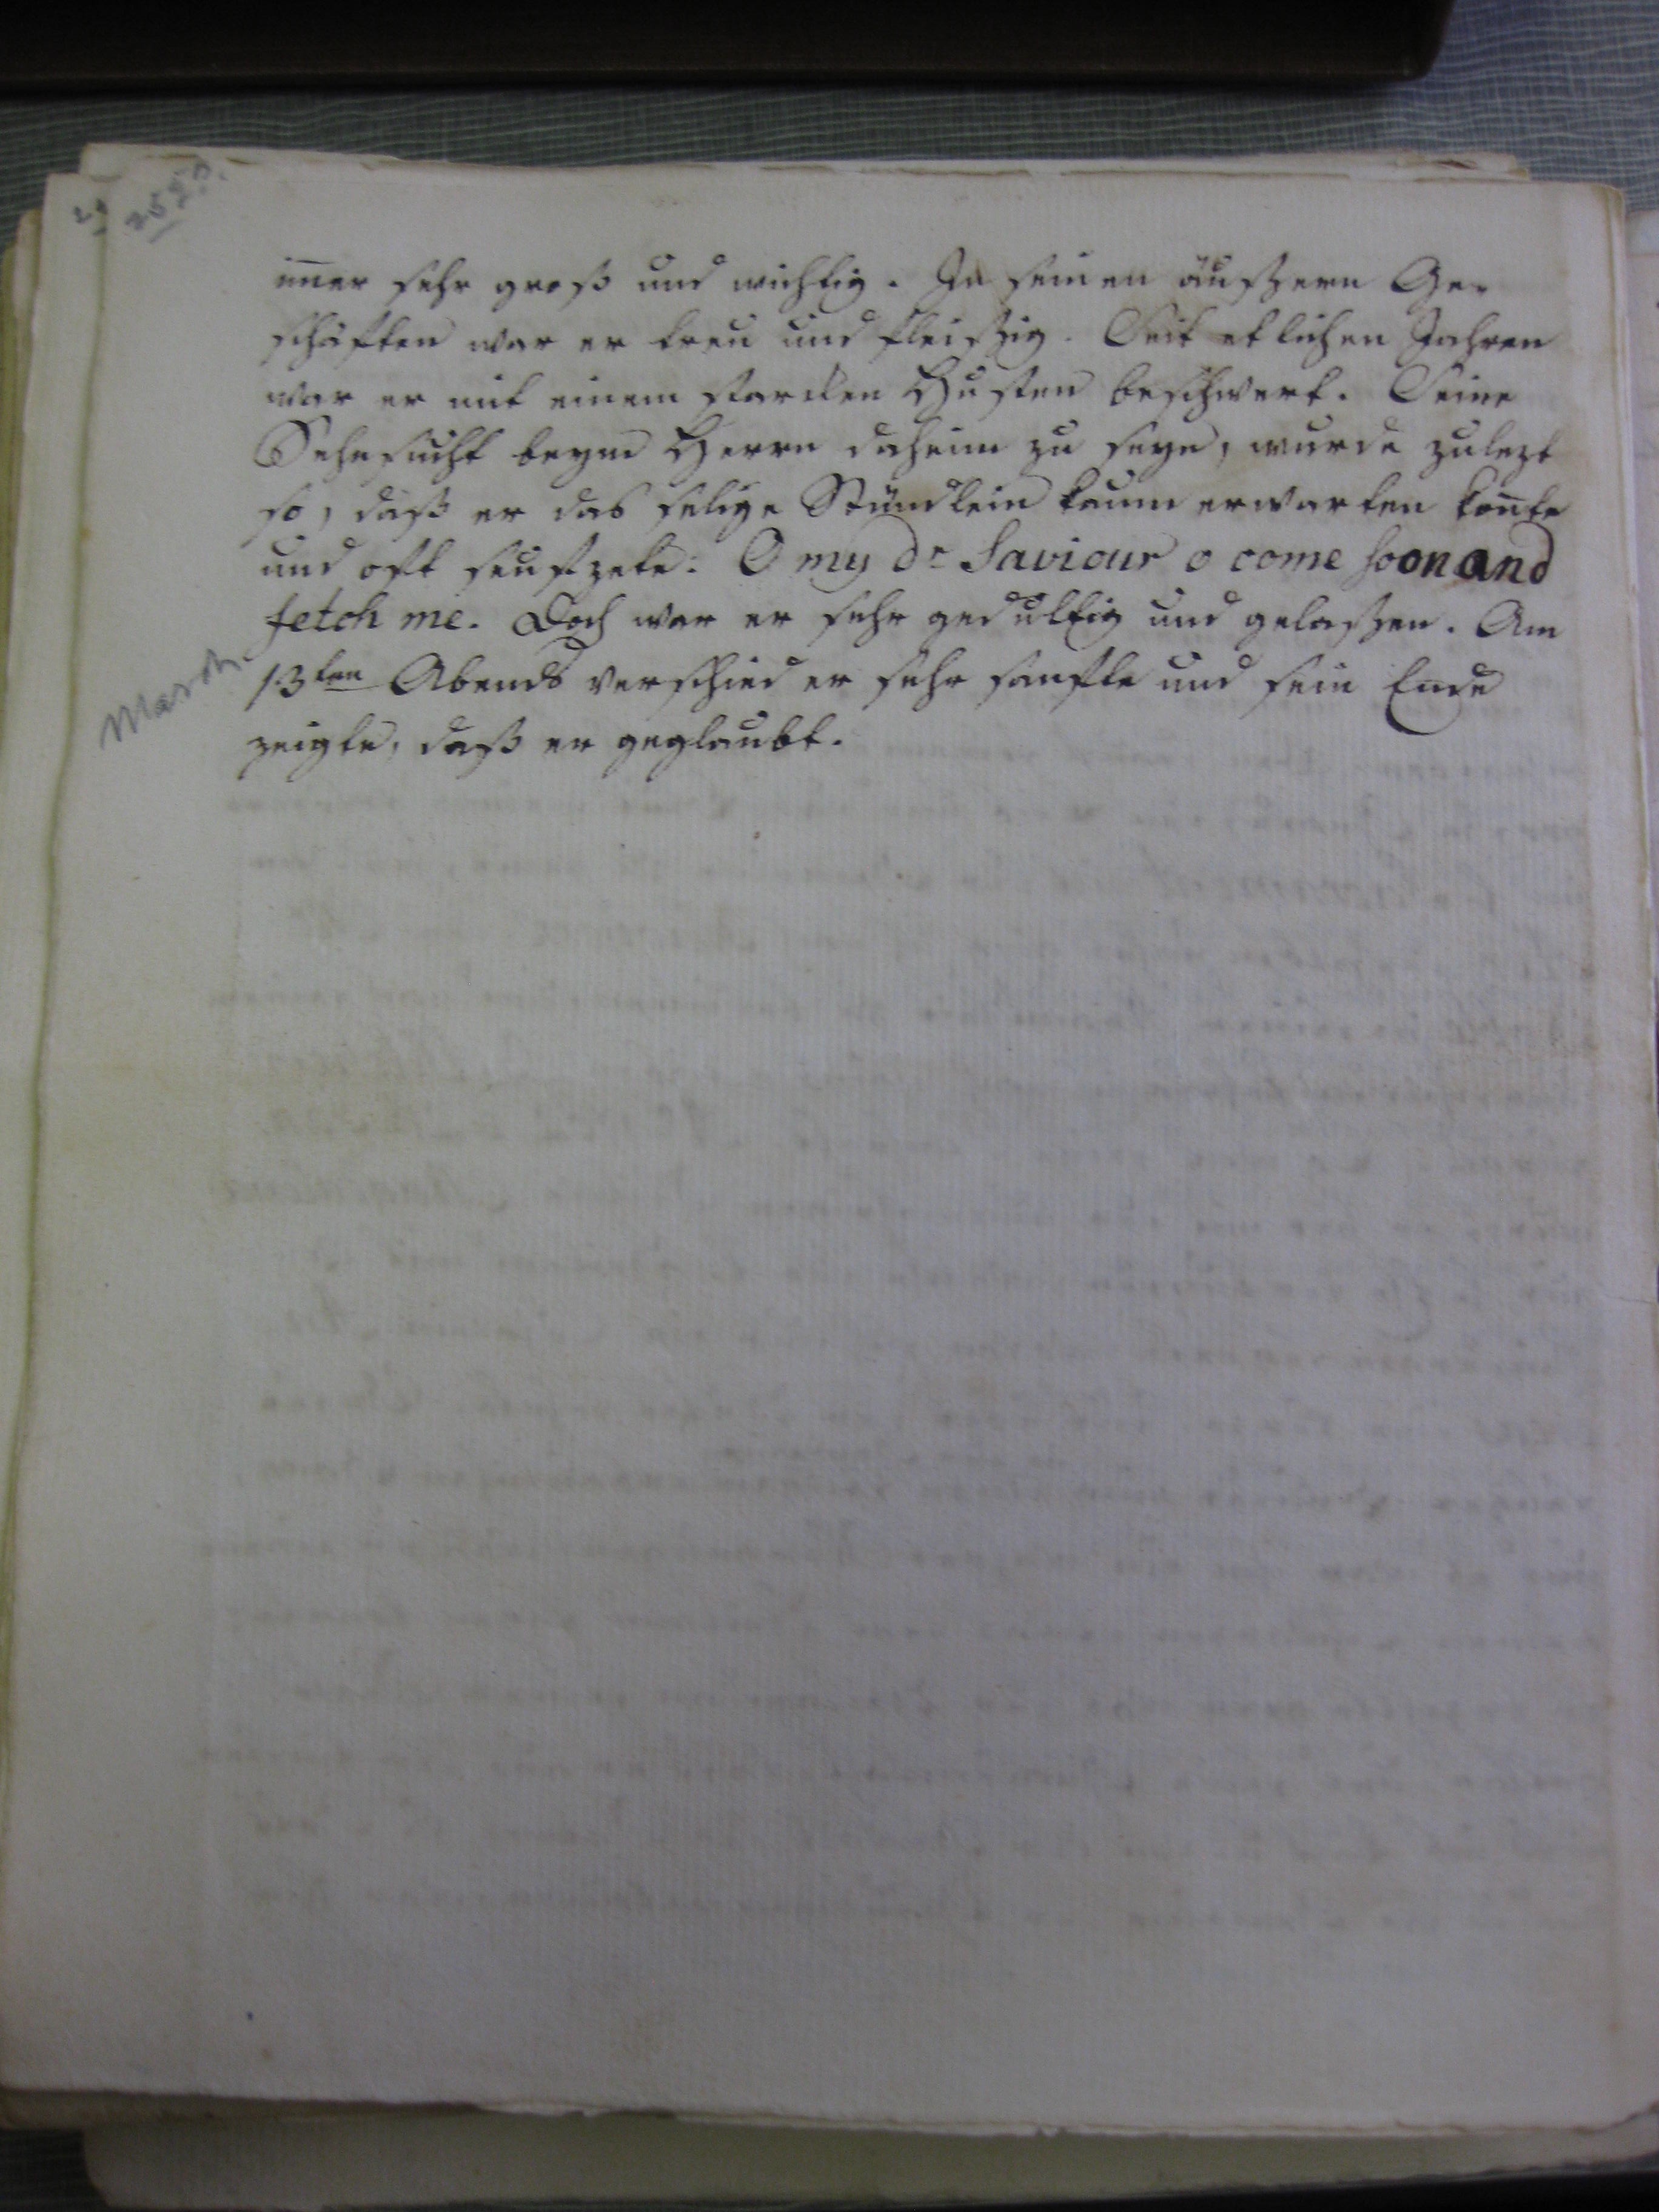 im̄er sehr groß und wichtig. In seinen äußern Ge-
schäften war er treu und fleißig. Seit etlichen Jahren
war er mit einem starcken Husten beschwert. Seine
Sehnsucht beym Herrn daheim zu seyn, wurde zulezt
so, daß er das selige Stündlein kaum erwarten kon̄te
und oft seufzete: O my dr Saviour o come soon and
fetch me. Doch war er sehr gedultig und gelaßen. Am
March
13ten Abends verschied er sehr sanfte und sein Ende
zeigte, daß er geglaubt.